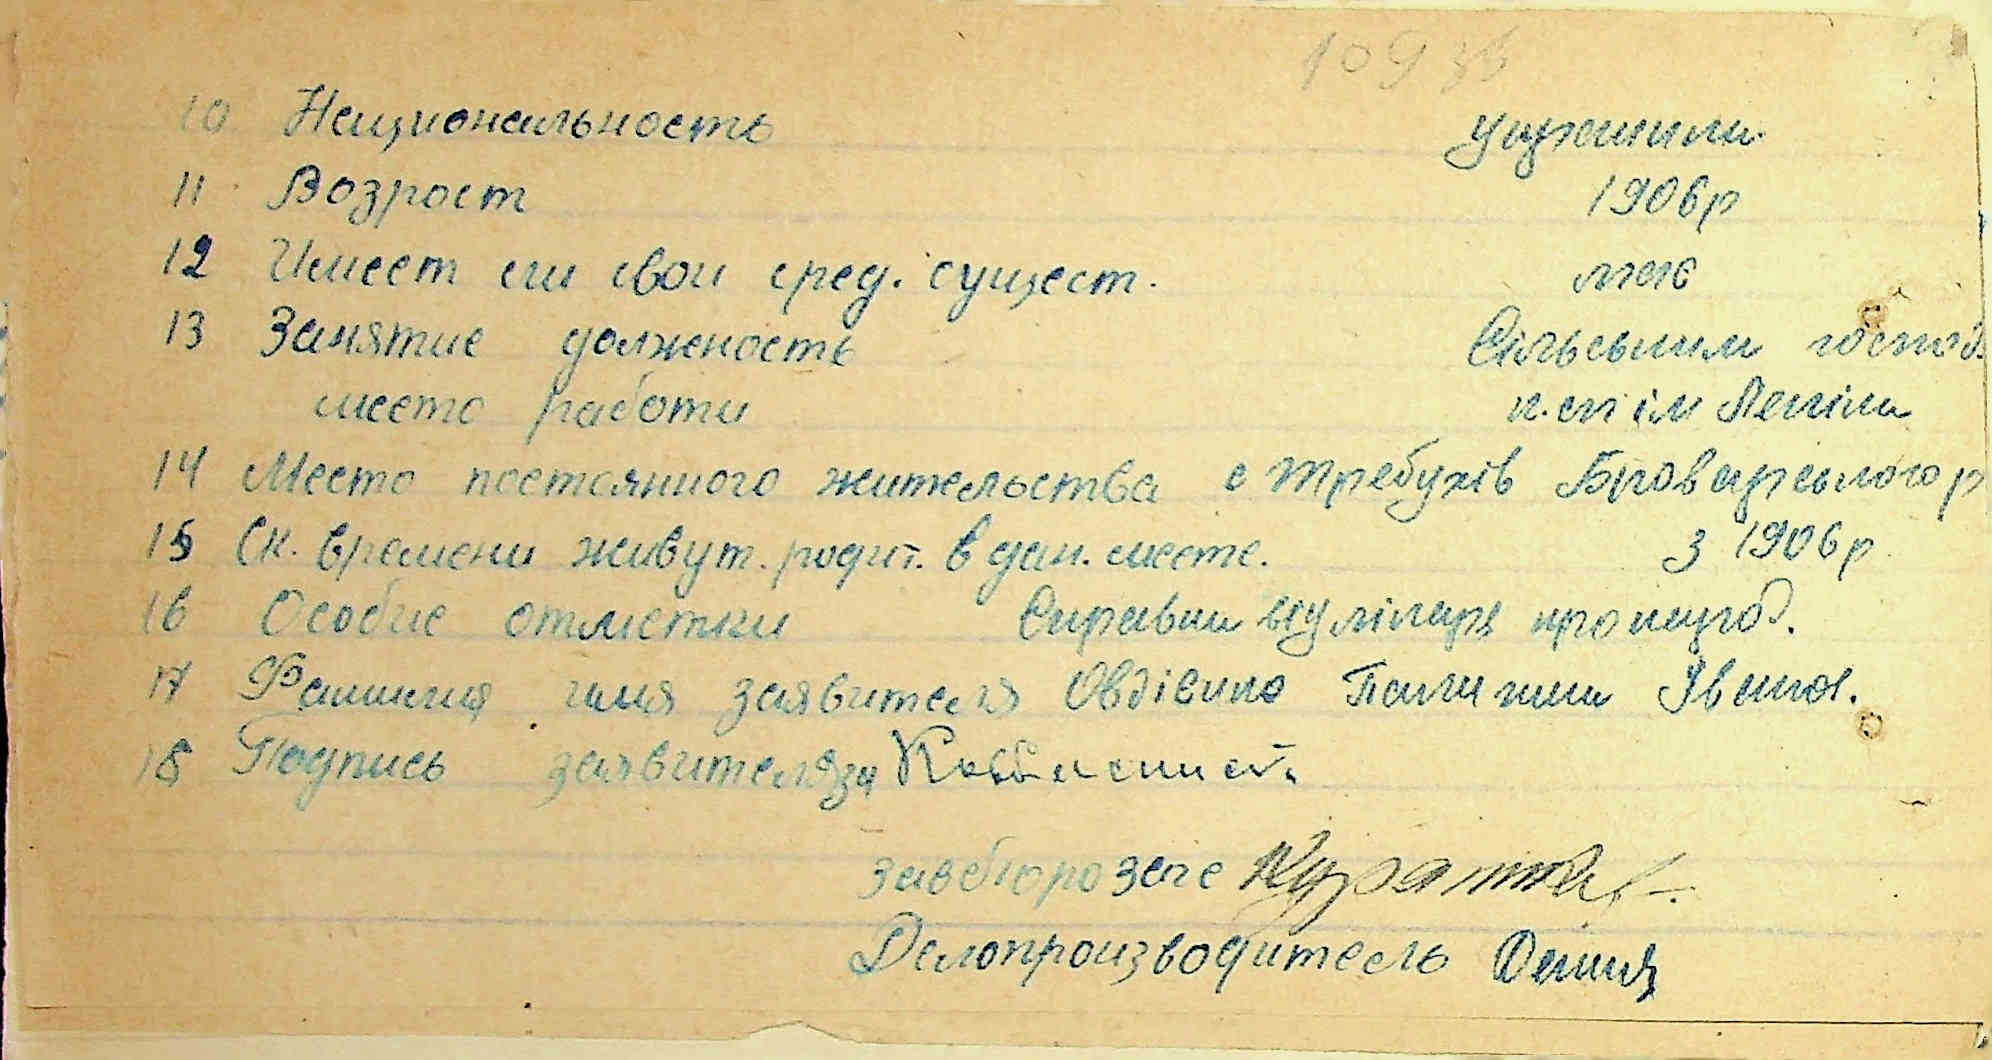 109 зв
10 Национальность українка
11 Возраст 1906 р
12 Имеет ли свои сред. сущест. має
13 Занятие должность Сільським господ
место работи к.сп ім Леніна
14 Место постоянного жительства с Требухів Броварського р
15 Ск. времени живут. родит. в дан. месте. з 1906 р
16 Особие отметки Справка від лікаря про народ.
17 Фамилия имя заявителя Овдієнко Палажка Іванов.
18 Подпись заявителя за
завбюро загс
Делопроизводитель